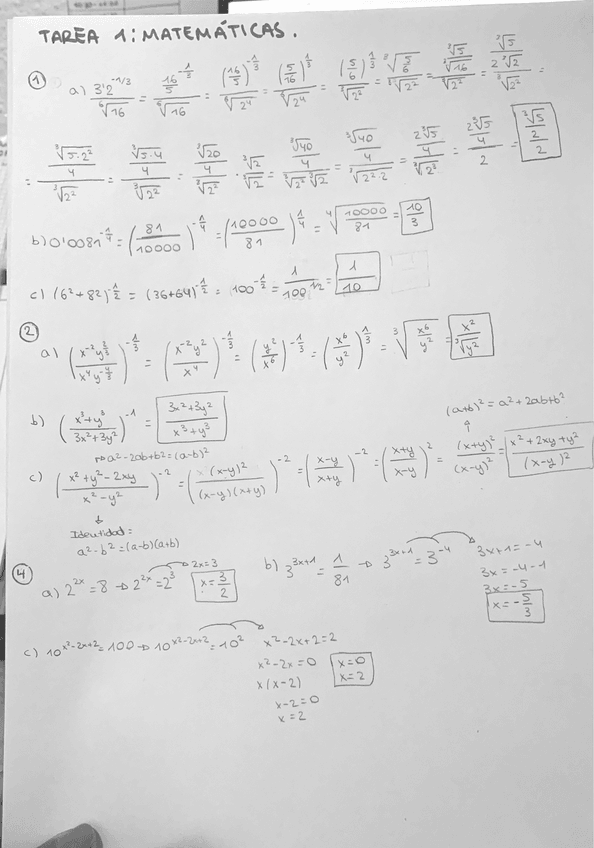 TAREA 1: MATEMÁTICAS.
① a) 3'2^(-1/3) / ⁶√16 = (16/5)^(-1/3) / ⁶√16 = (16/5)^(-1/3) / ⁶√2⁴ = (5/16)^(1/3) / ⁶√2⁴ = (5/6)^(1/3) / ³√2² = ³√(5/6) / ³√2² = (³√5 / ³√16) / ³√2² = (³√5 / 2³√2) / ³√2² =
= (³√5·2² / 4) / ³√2² = (³√5·4 / 4) / ³√2² = (³√20 / 4) / ³√2² · ³√2 / ³√2 = (³√40 / 4) / ³√2² ³√2 = (³√40 / 4) / ³√2²·2 = (2³√5 / 4) / ³√2³ = (2³√5 / 4) / 2 = (³√5 / 2) / 2
b) 0'0081^(-1/4) = (81/10000)^(-1/4) = (10000/81)^(1/4) = ⁴√(10000/81) = 10/3
c) (6²+8²)^(-1/2) = (36+64)^(-1/2) = 100^(-1/2) = 1/100^(1/2) = 1/10
②
a) (x⁻² y^(2/3) / x⁴ y^(-4/3))^(-1/3) = (x⁻²y² / x⁴)^(-1/3) = (y²/x⁶)^(-1/3) = (x⁶/y²)^(1/3) = ³√(x⁶/y²) = x²/³√y²
(a+b)² = a²+2ab+b²
b) (x³+y³ / 3x²+3y²)^(-1) = 3x²+3y² / x³+y³
↱ a²-2ab+b² = (a-b)²
c) (x²+y²-2xy / x²-y²)^(-2) = ((x-y)² / (x-y)(x+y))^(-2) = (x-y / x+y)^(-2) = (x+y / x-y)² = (x+y)² / (x-y)² = x²+2xy+y² / (x-y)²
↓
Identidad:
a²-b² = (a-b)(a+b)
④
a) 2^(2x) = 8 → 2^(2x) = 2³ 2x=3 x = 3/2
b) 3^(3x+1) = 1/81 → 3^(3x+1) = 3⁻⁴ 3x+1 = -4
3x = -4-1
3x = -5
x = -5/3
c) 10^(x²-2x+2) = 100 → 10^(x²-2x+2) = 10² x²-2x+2 = 2
x²-2x = 0 x=0
x(x-2) x=2
x-2=0
x=2